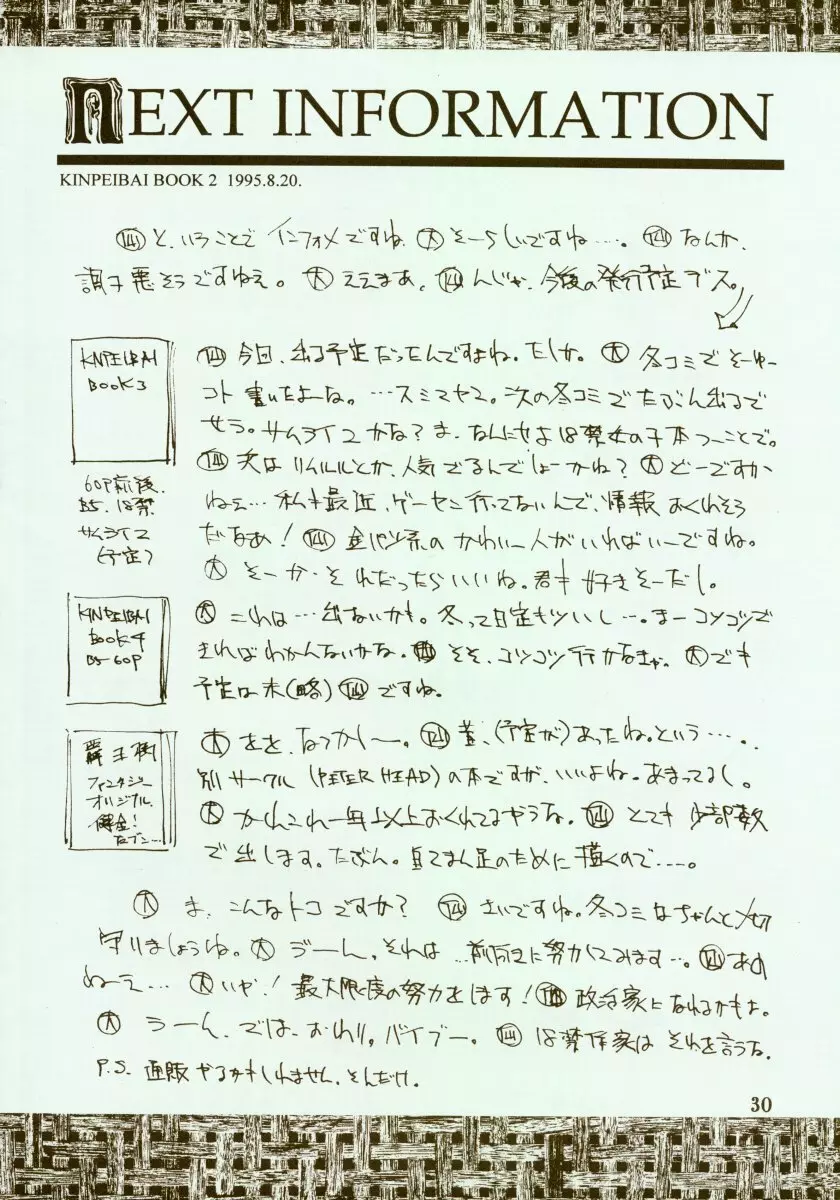 NEXT INFORMATION
KINPEIBAI BOOK 2 1995.8.20.
と、いうことで インフォメですね。 大 そーらしいですね…。 なんか、
調子悪そうですねえ。 大 ええまあ、 んじゃ、今後の発行予定デス。
KINPEIBAI
BOOK3
60P前後、
B5、18禁
サムライ2
(予定)
今回、出る予定だったんですよね。たしか。 大 冬コミでそーゆー
コト書いたよーな。…スミマセン。次の冬コミでたぶん出るで
せう。サムライ2かな?ま、なんにせよ18禁女の子本っつーことで。
大はリムルルとか、人気でるんでしょーかね? 大 どーですか
ねぇ…私も最近、ゲーセン行ってないんで、情報おくれそう
だなあ! 金パツ系のかわいー人がいればいーですね。
大 そーか・それだったらいいね。君も好きそーだし。
KINPEIBAI
BOOK4
B5-60P
大 これは…出ないかも。冬って日程もツいし…。まーコツコツで
きればわかんないかな。 そそ、コツコツ行かなきゃ。 大 でも
予定は未(略) ですね。
覇王樹
ファンタジー
オリジナル
大 をを、なつかし〜。 昔、(予定が)あったね。という…..
別サークル(PETER HEAD)の本ですが、いいよね。あまってるし。
大 かれこれ一年以上おくれてるやうな。 とても少部数
で出します。たぶん。自こまん足のために描くので…。
大 ま、こんなトコですか? さいですね。冬コミはちゃんと〆切
守りましょうね。 大 うーん、それは…前向きに努力してみます…。 あの
ねーえ… 大 いや!最大限度の努力をします! 政治家になれるかもよ。
大 うーん、では、おわり。バイブー。 18禁作家はそれを言うな。
P.S. 通販やるかもしれません、そんだけ。
30